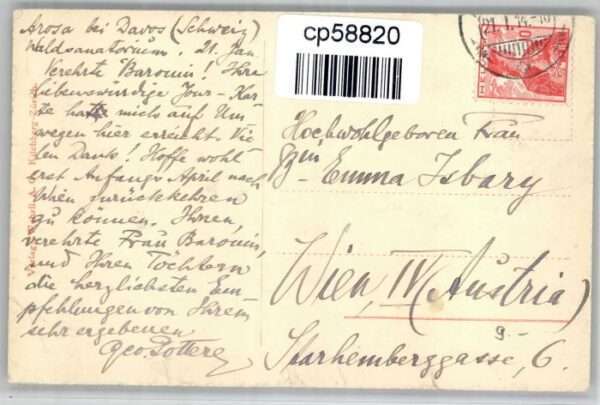 Arosa bei Davos (Schweiz)
Waldsanatorium. 21. Jan.
Verehrte Baronin! Ihre
liebenswürdige Jour-Kar-
te hat mich auf Um-
wegen hier erreicht. Vie-
len Dank! Hoffe wohl
erst Anfangs April nach
Wien zurückkehren
zu können. Ihnen,
verehrte Frau Baronin,
und Ihren Töchtern
die herzlichsten Em-
pfehlungen von Ihrem
sehr ergebenen
Geo.
cp58820
21. I. 14
Hochwohlgeboren Frau
Emma Isbary
Wien, IV (Austria)
9.-
Starhemberggasse, 6.
Verlag